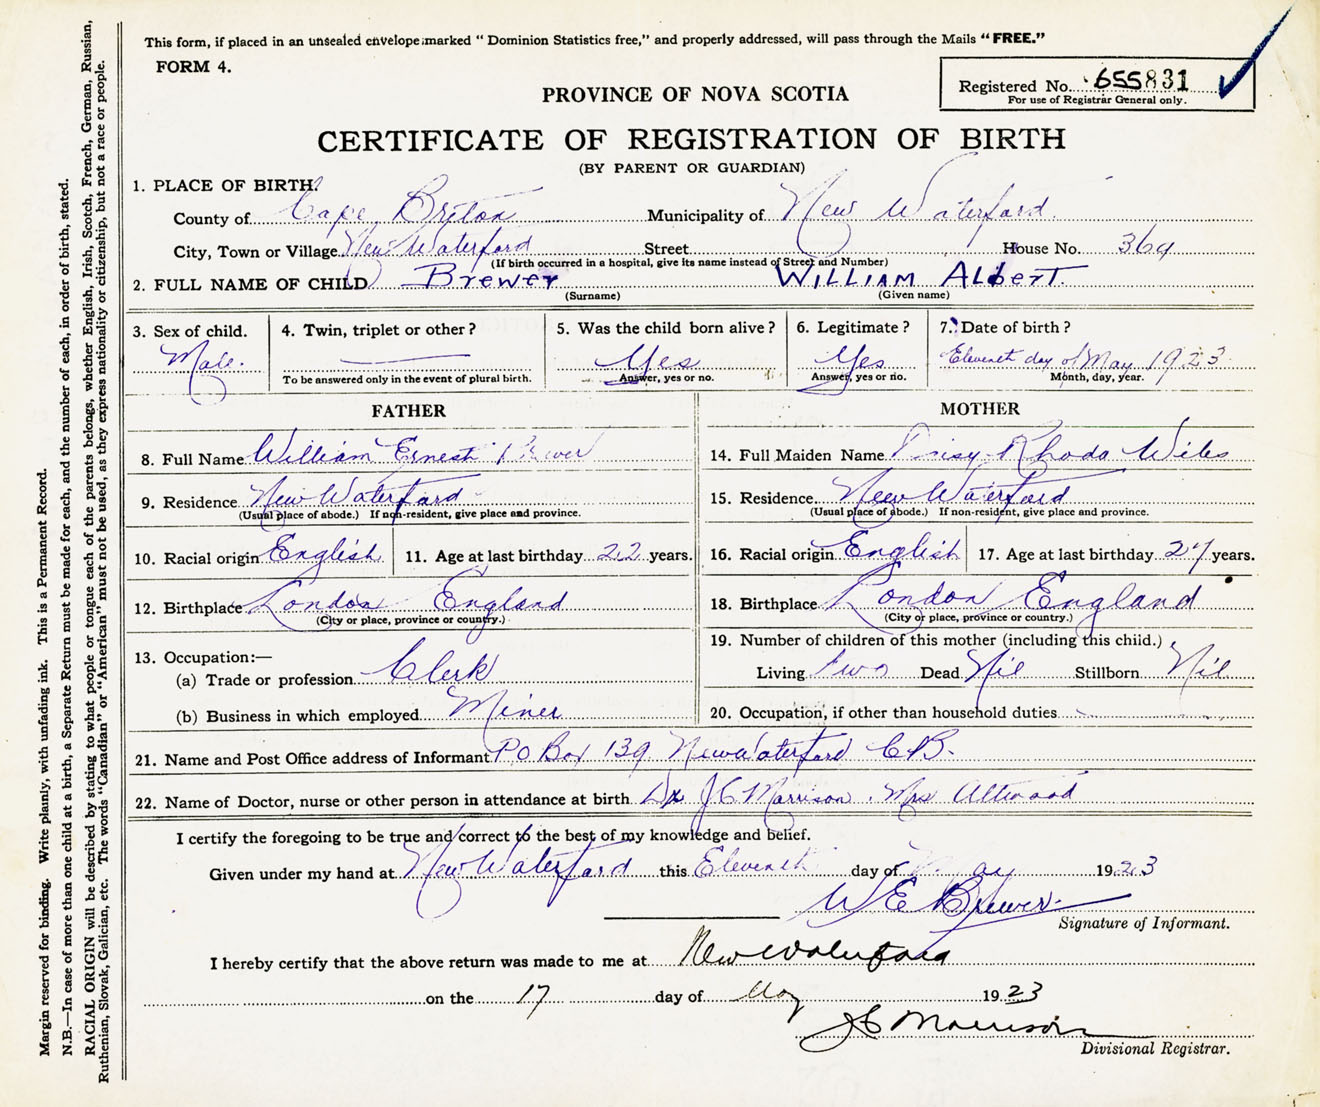 This form, if placed in an unsealed envelope marked "Dominion Statistics free," and properly addressed, will pass through the Mails "FREE."
FORM 4.
Registered No. 655831
For use of Registrar General only.
PROVINCE OF NOVA SCOTIA
CERTIFICATE OF REGISTRATION OF BIRTH
(BY PARENT OR GUARDIAN)
1. PLACE OF BIRTH:
County of Cape Briton Municipality of New Waterford.
City, Town or Village New Waterford Street House No. 369
(If birth occurred in a hospital, give its name instead of Street and Number)
2. FULL NAME OF CHILD Brewer WILLIAM Albert.
(Surname) (Given name)
3. Sex of child. 4. Twin, triplet or other? 5. Was the child born alive? 6. Legitimate? 7. Date of birth?
Male. Yes Yes Eleventh day of May 1923
To be answered only in the event of plural birth. Answer, yes or no. Answer, yes or no. Month, day, year.
FATHER MOTHER
8. Full Name William Ernest Brewer 14. Full Maiden Name Daisy Rhoda Wiles
9. Residence New Waterford 15. Residence New Waterford
(Usual place of abode.) If non-resident, give place and province. (Usual place of abode.) If non-resident, give place and province.
10. Racial origin English 11. Age at last birthday 22 years. 16. Racial origin English 17. Age at last birthday 27 years.
12. Birthplace London England 18. Birthplace London England
(City or place, province or country.) (City or place, province or country.)
19. Number of children of this mother (including this child.)
13. Occupation:—
(a) Trade or profession Clerk Living Two Dead Nil Stillborn Nil
(b) Business in which employed Miner 20. Occupation, if other than household duties
21. Name and Post Office address of Informant PO Box 139 New Waterford C.B.
22. Name of Doctor, nurse or other person in attendance at birth Dr J C Morrison. Mrs Attwood
I certify the foregoing to be true and correct to the best of my knowledge and belief.
Given under my hand at New Waterford this Eleventh day of May 1923
W E Brewer
Signature of Informant.
I hereby certify that the above return was made to me at New Waterford
on the 17 day of May 1923
J C Morrison
Divisional Registrar.
Margin reserved for binding. Write plainly, with unfading ink. This is a Permanent Record.
N.B.—In case of more than one child at a birth, a Separate Return must be made for each, and the number of each, in order of birth, stated.
RACIAL ORIGIN will be described by stating to what people or tongue each of the parents belongs, whether English, Irish, Scotch, French, German, Russian,
Ruthenian, Slovak, Galician, etc. The words "Canadian" or "American" must not be used, as they express nationality or citizenship, but not a race or people.